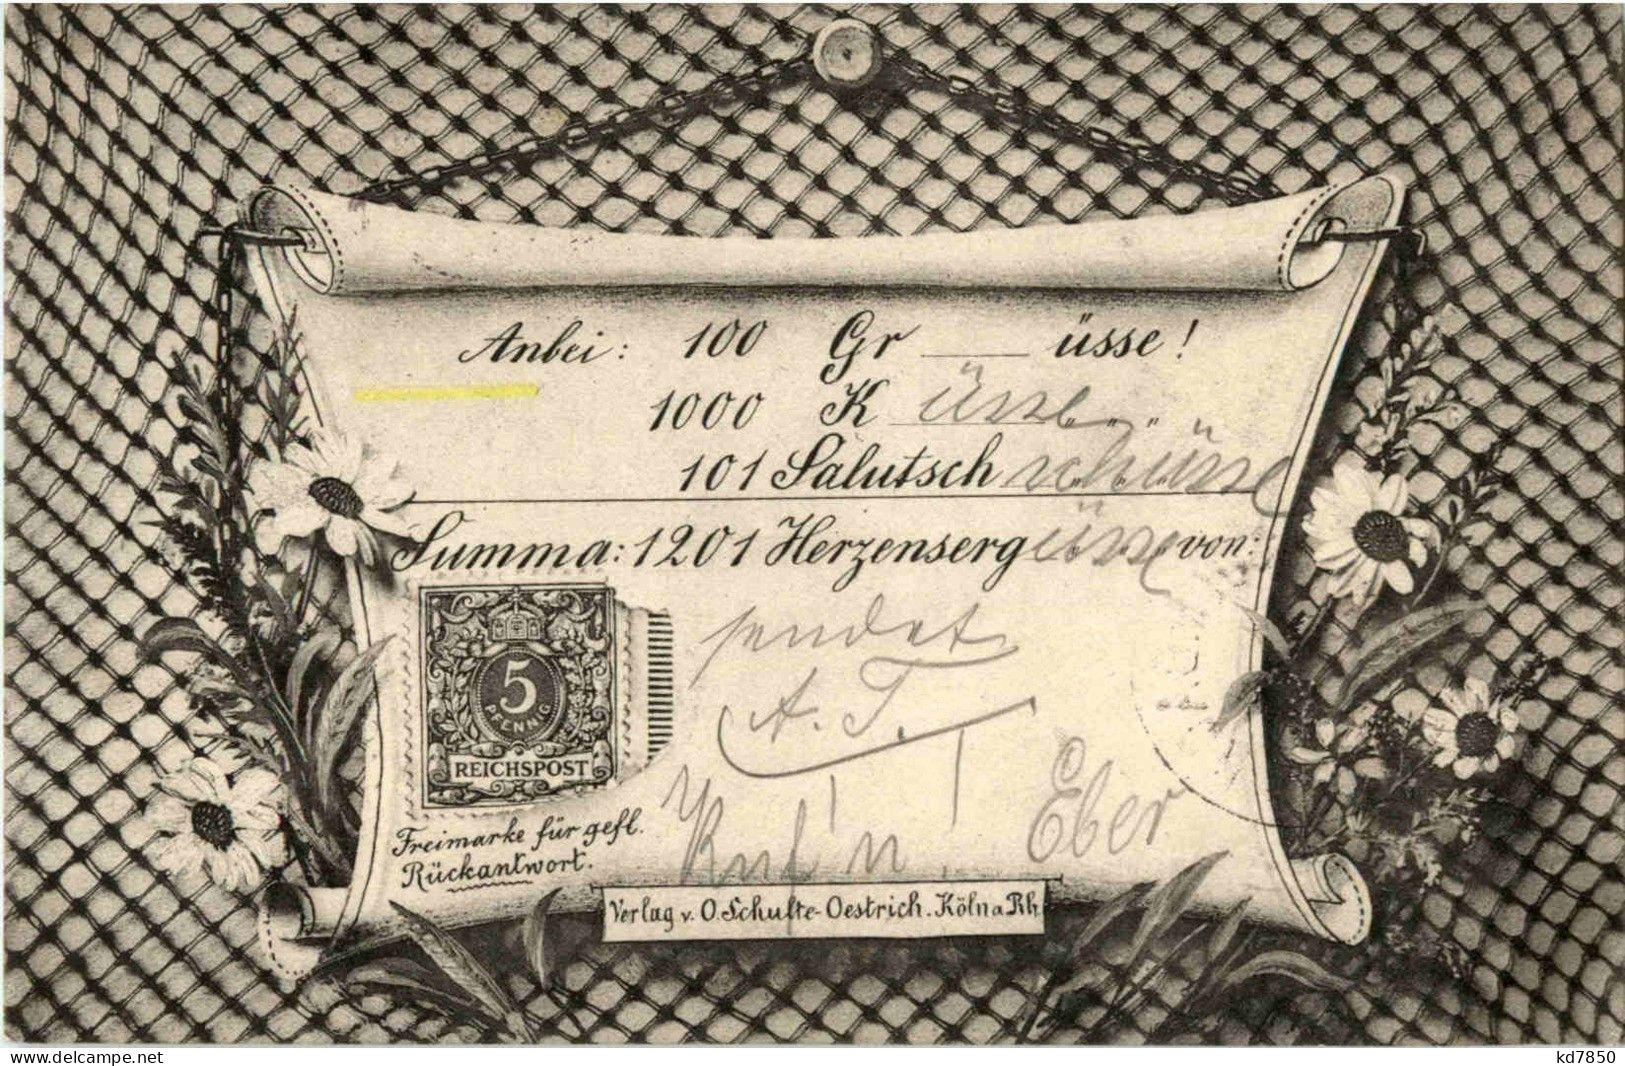 Anbei: 100 Gr üsse!
1000 K üsse „ „
101 Salutsch
Summa: 1201 Herzenserg üsse von:
sendet
A. T.
5
PFENNIG
REICHSPOST
Freimarke für gefl.
Rückantwort.
Eber
Verlag v. O. Schulte-Oestrich. Köln a Rh.
www.delcampe.net
kd7850